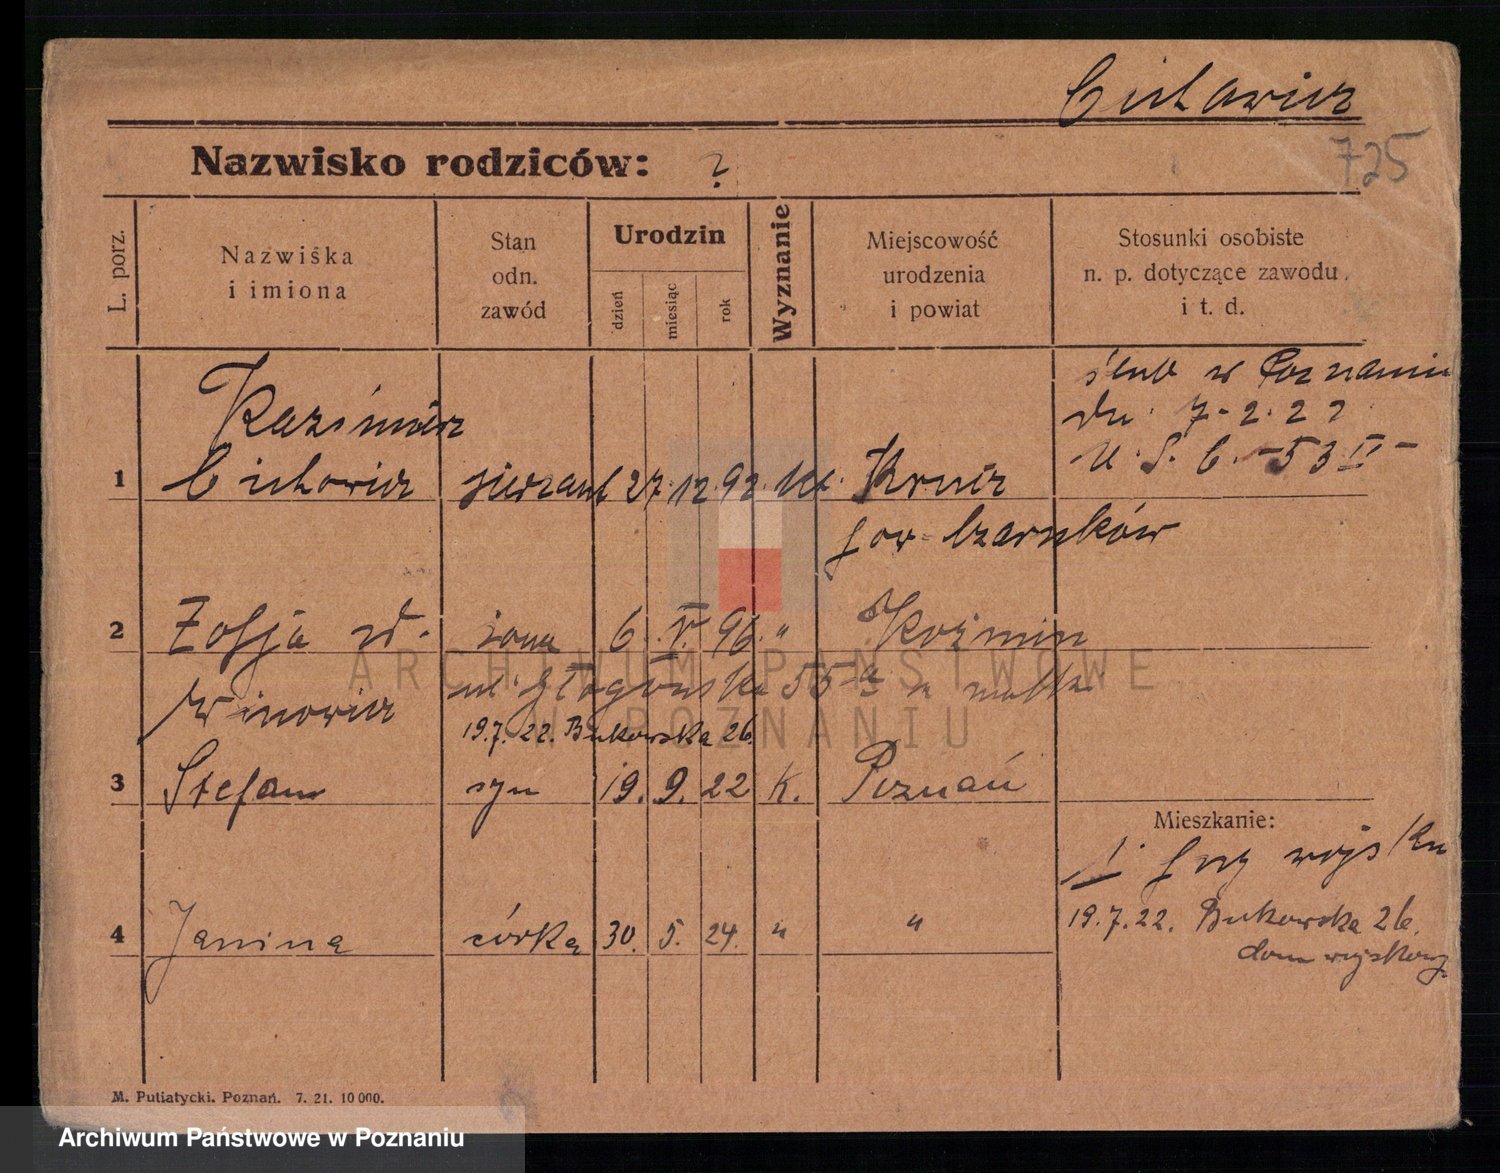 Cichowicz
725
Nazwisko rodziców: ?
L. porz.
Nazwiska
i imiona
Stan
odn.
zawód
Urodzin
dzień
miesiąc
rok
Wyznanie
Miejscowość
urodzenia
i powiat
Stosunki osobiste
n. p. dotyczące zawodu
i t. d.
ślub w Poznaniu
dn. 7.2.22
U.S.C. - 53 II -
Kazimierz
1 Cichowicz sierżant 27 12 92 kat. Krucz
pow. Czarnków
2 Zofja ur. żona 6. V. 96. " Koźmin
ul. Głogowska 55a u matki
19.7.22. Bukowska 26.
3 Stefan syn 19. 9. 22 K. Poznań
Mieszkanie:
19.7.22. Bukowska 26.
dom wojskowy
4 Janina córka 30. 5. 24. " "
M. Putiatycki. Poznań. 7. 21. 10 000.
ARCHIWUM PAŃSTWOWE
W POZNANIU
Archiwum Państwowe w Poznaniu